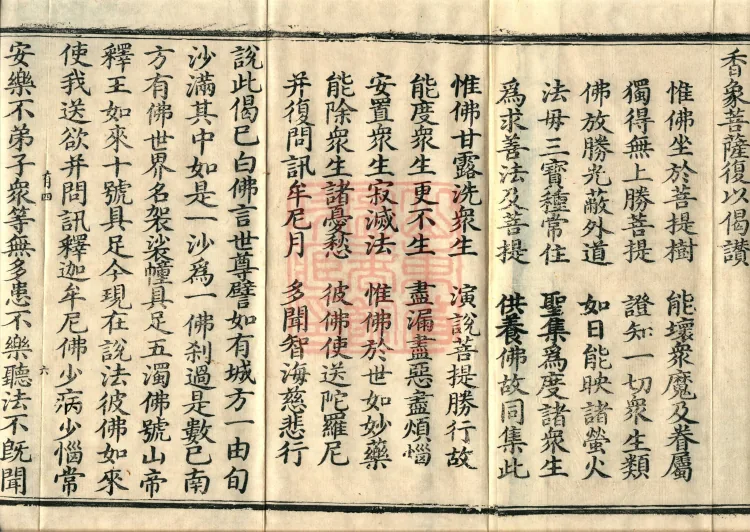 香象菩薩復以偈讚
惟佛坐於菩提樹　能壞衆魔及眷屬
獨得無上勝菩提　證知一切衆生類
佛放勝光蔽外道　如日能映諸螢火
法毋三寶種常住　聖集爲度諸衆生
爲求善法及菩提　供養佛故同集此
惟佛甘露洗衆生　演說菩提勝行故
能度衆生更不生　盡漏盡惡盡煩惱
安置衆生寂滅法　惟佛於世如妙藥
能除衆生諸憂愁　彼佛使送陀羅尼
并復問訊牟尼月　多聞智海慈悲行
說此偈已白佛言世尊譬如有城方一由旬
沙滿其中如是一沙爲一佛刹過是數已南
方有佛世界名袈裟幢具足五濁佛號山帝
釋王如來十號具足今現在說法彼佛如來
使我送欲并問訊釋迦牟尼佛少病少惱常
有四
六
安樂不弟子衆等無多患不樂聽法不旣聞